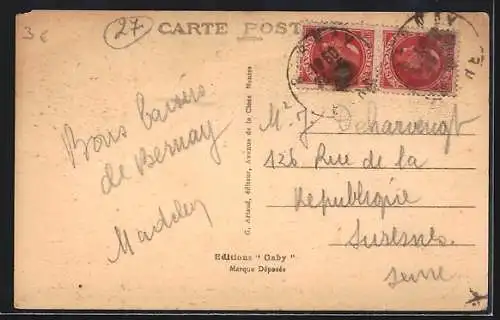 3€
27
CARTE POST
Bons baisers
de Bernay
G. Artaud, éditeur, Avenue de la Close Nantes
Mr J Deharvengt
126 Rue de la
République
Suresnes
Seine
Editions "Gaby"
Marque Déposée